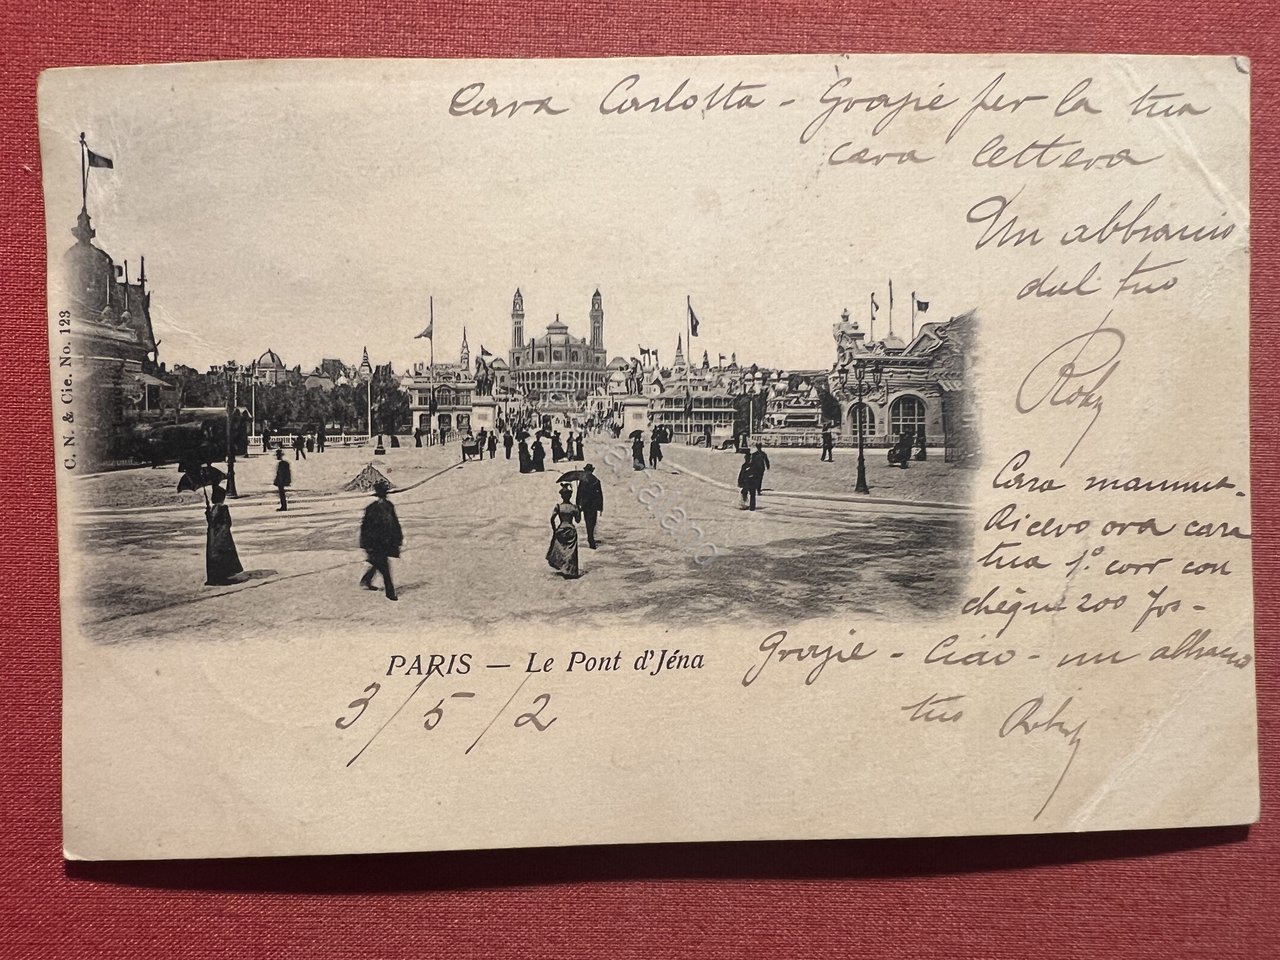 Cara Carlotta - Grazie per la tua
cara lettera
Un abbraccio
dal tuo
Roby
C. N. & Cie. No. 123
Cara mamma -
Ricevo ora cara
tua 1° corr con
chèque 200 frs -
Grazie - Ciao - un abbraccio
tuo Roby
PARIS — Le Pont d'Jéna
3/5/2